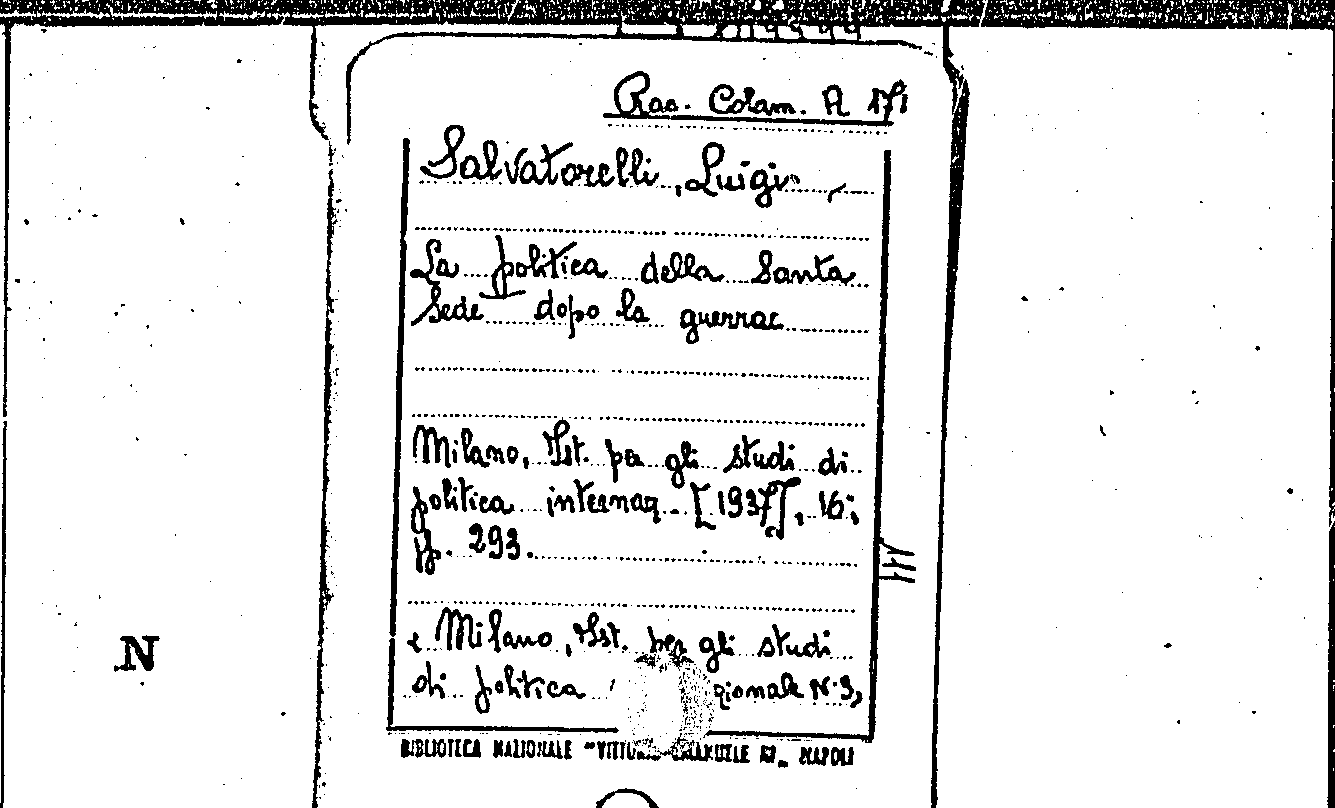 Rac. Colam. A 171
Salvatorelli, Luigi
La politica della Santa
Sede dopo la guerra
Milano, Ist. per gli studi di
politica internaz. [1937], 16;
pp. 293.
e Milano, Ist. per gli studi
di politica zionale N. 3,
BIBLIOTECA NAZIONALE "VITTORIO EMANUELE III" NAPOLI
N